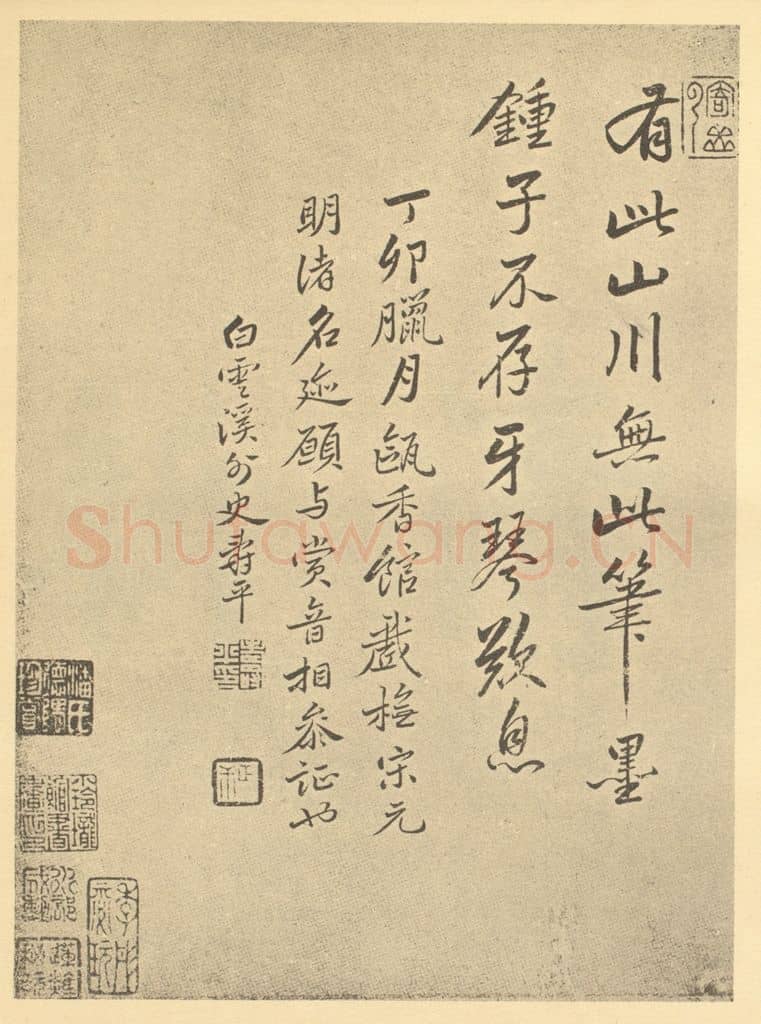 有此山川無此筆墨
鍾子不存牙琴歎息
丁卯臘月甌香館戲橅宋元
明諸名迹願与賞音相參証也
白雲溪外史壽平
Shufawang.CN